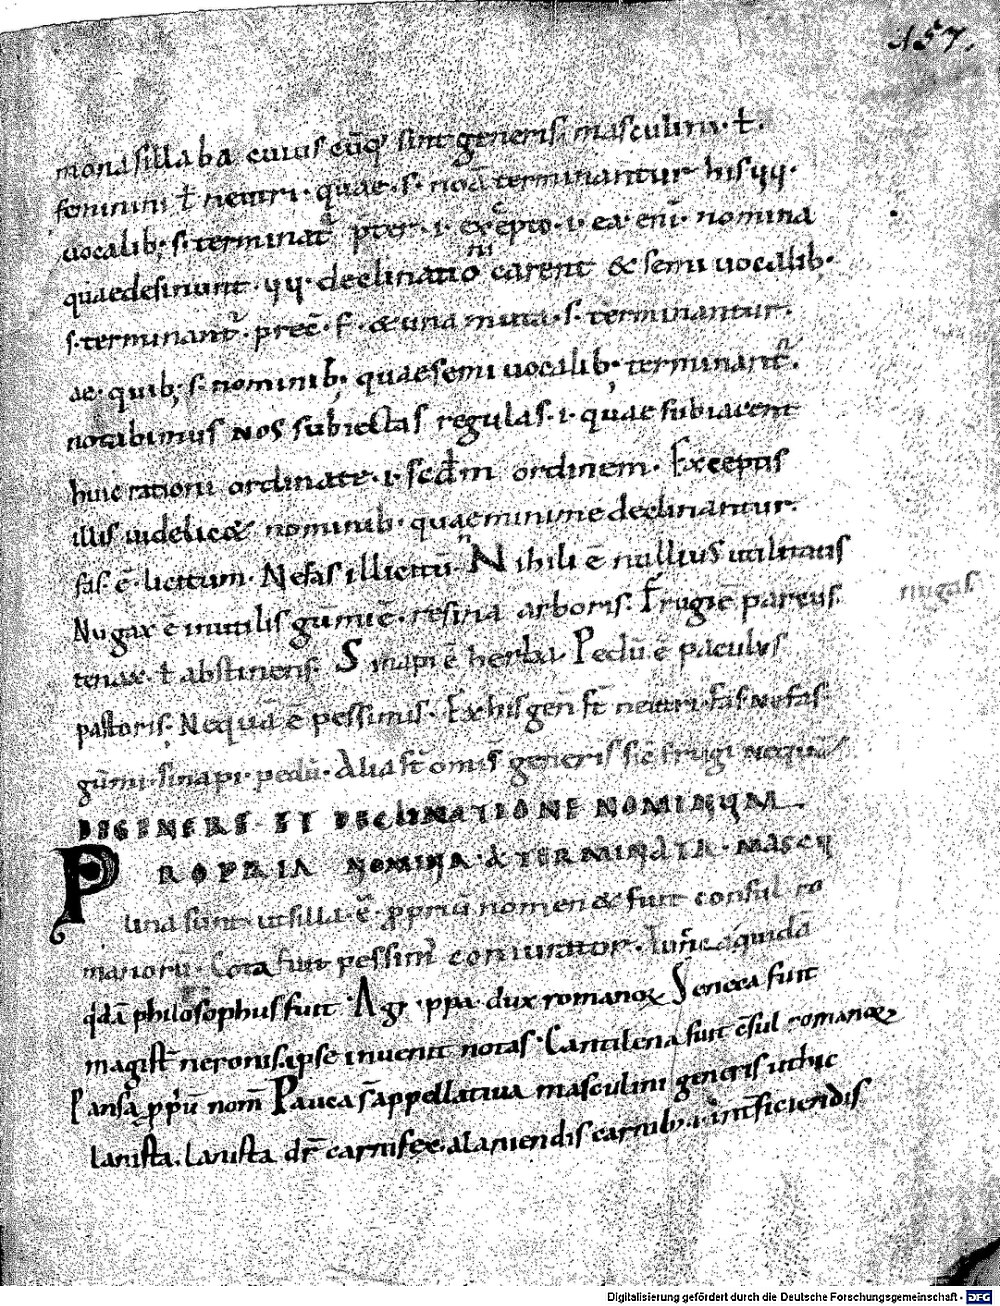 157.
monasillaba cuiuscūq; sint generis masculini· ł.
feminini ł neutri· quae· s· noā terminantur his ųų·
uocalib; s· terminat̄ p̄ter· i· excepto· i· ea· eni· nomina
quaedesinunt· ųų· declinatio carent & semi uocalib·
s· terminant̄· pret̄· f· & una muta· s· terminantur.
ae· quib; s· nominib; quae semi uocalib; terminant̄.
notabimus nos subiectas regulas· i· quae subiacent
huic rationi ordinate· i· scđm ordinem· Exceptis
illis uidelic& nominib· quae minime declinantur.
fas ē· licitum· Nefas illicitū· Nihili ē nullius utilitatis
Nugax ē inutilis gūmi ē· resina arboris. Frugi ē parcus nugas
tenax· ł abstinens. Sinapi ē herba Pedū ē baculus
pastoris. Nequā ē pessimus· Ex his geñ st̄ neutri· fas nefas
gūmi· sinapi· pedū· Alia st̄ omis̄ generis sic frugi nequā
DEGENERE· ET DECLINATIONE NOMINUM.
PROPRIA NOMINA· A TERMINATA· MASCU
lina sunt· ut silla· ē· ꝓpriū nomen & fuit consul ro
manorū· Cotta fuit pessim' coniurator· quidā
q̄dā philosophus fuit· Agrippa· dux romanoꝝ Seneca fuit
magist̄ neronis. ipse inuenit notas· Cantilena fuit c̄sul romanoꝝ
Pansa ꝓpriū nom̄ Pauca s̄ appellatiua masculini generis ut hic
lanista. Lanista dr̄ carnifex· a laniendis carnib; · i· int̄ficiendis
Digitalisierung gefördert durch die Deutsche Forschungsgemeinschaft · DFG